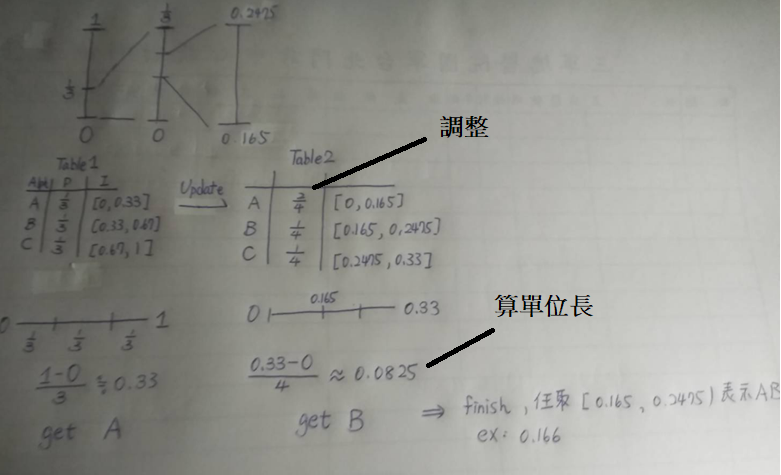 1
1/3
0
1/3
0
0.2475
0.165
調整
Table1
P I
A 1/3 [0,0.33]
B 1/3 [0.33,0.67]
C 1/3 [0.67,1]
Update
Table2
A 2/4 [0,0.165]
B 1/4 [0.165,0.2475]
C 1/4 [0.2475,0.33]
0 1/3 1/3 1/3 1
0 0.165 0.33
算單位長
(1-0)/3 ≒ 0.33
(0.33-0)/4 ≈ 0.0825
get A
get B
⇒ finish, 任取 [0.165, 0.2475) 表示AB
ex: 0.166